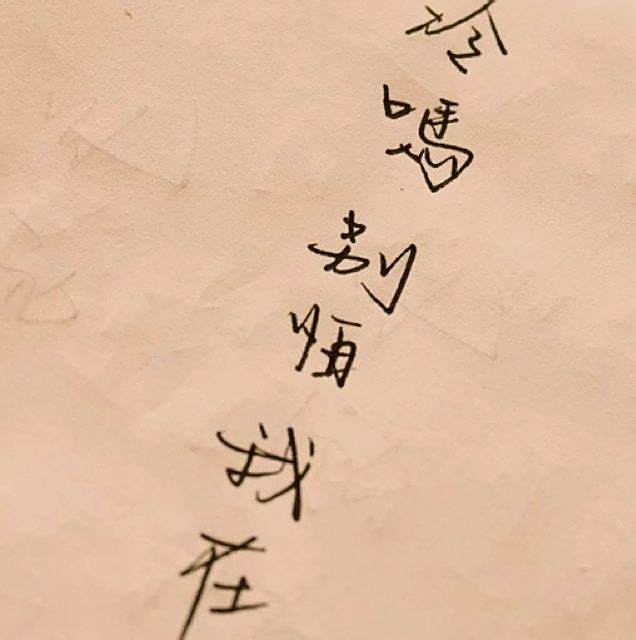 冷嗎别怕我在